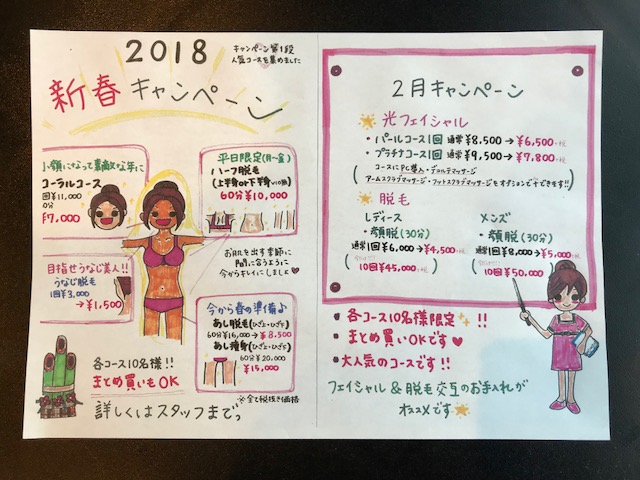 2018
新春キャンペーン
キャンペーン第1段
人気コースを集めました
小顔になって素敵な年に
コーラルコース
¥11,000
¥7,000
平日限定(月〜金)
ハーフ脱毛
(上半身or下半身VIO無)
60分¥10,000
お肌を出す季節に
間に合うように
今からキレイにしましょ♥
目指せうなじ美人!!
うなじ脱毛
1回¥3,000
→¥1,500
今から春の準備♪
あし脱毛(ひざ上・ひざ下)
60分¥16,000→¥8,500
あし痩身(ひざ上・ひざ下)
60分¥20,000
¥15,000
各コース10名様!!
まとめ買いもOK
※全て税抜き価格
詳しくはスタッフまでっ
2月キャンペーン
光フェイシャル
・パールコース1回 通常¥8,500→¥6,500+税
・プラチナコース1回 通常¥9,500→¥7,800+税
コースにPC導入・デコルテマッサージ
アームスクラブマッサージ・フットスクラブマッサージもオプションで+できます!!
脱毛
レディース
・顔脱(30分)
通常1回¥6,000→¥4,500+税
10回¥45,000+税
メンズ
・顔脱(30分)
通常1回¥8,000→¥5,000+税
10回¥50,000+税
・各コース10名様限定!!
・まとめ買いOKです♥
・大人気のコースです!!
フェイシャル&脱毛交互のお手入れが
オススメです